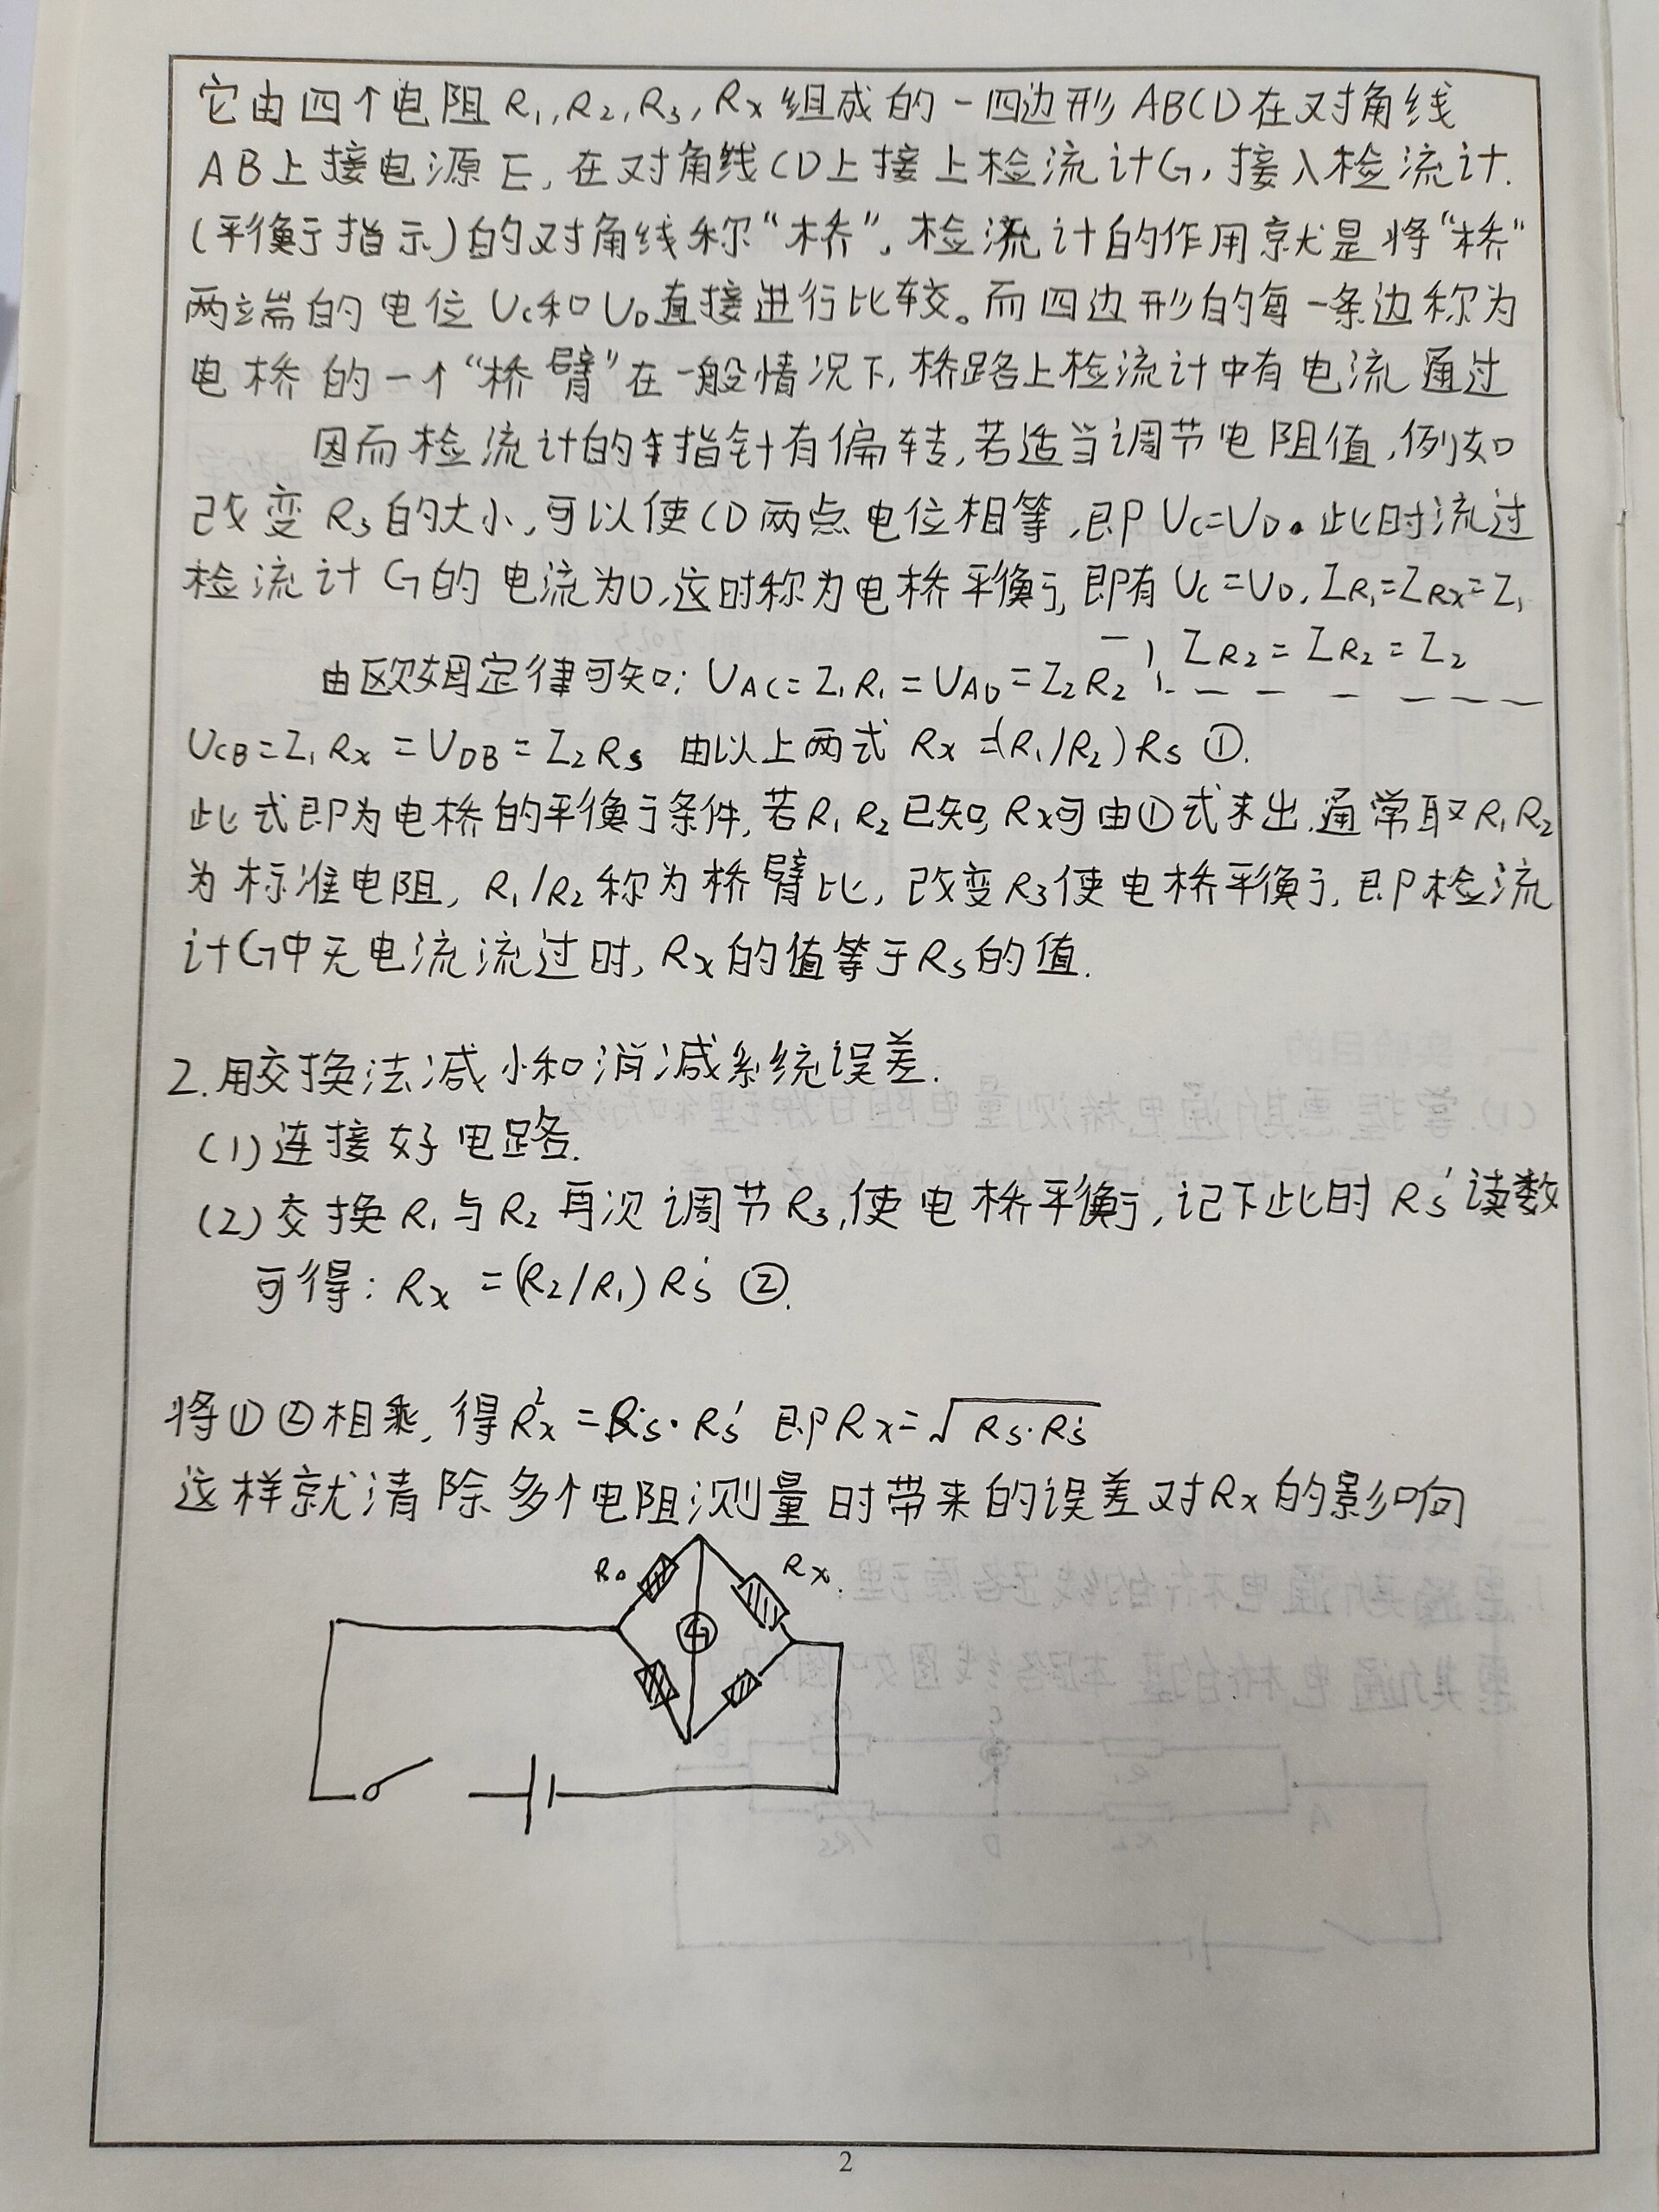 它由四个电阻R₁,R₂,R₃,Rx组成的一四边形ABCD在对角线
AB上接电源E,在对角线CD上接上检流计G,接入检流计.
(平衡指示)的对角线称“桥”。检流计的作用就是将“桥”
两端的电位Uc和UD直接进行比较。而四边形的每一条边称为
电桥的一个“桥臂”在一般情况下,桥路上检流计中有电流通过
因而检流计的指针有偏转,若适当调节电阻值,例如
改变R₃的大小,可以使CD两点电位相等,即Uc=UD。此时流过
检流计G的电流为0,这时称为电桥平衡,即有Uc=UD,IR₁=IRx=I₁
IR₂=IR₂=I₂
由欧姆定律可知:UAC=I₁R₁=UAD=I₂R₂
UCB=I₁Rx=UDB=I₂Rs 由以上两式Rx=(R₁/R₂)Rs ①.
此式即为电桥的平衡条件,若R₁R₂已知,Rx可由①式求出.通常取R₁R₂
为标准电阻,R₁/R₂称为桥臂比,改变R₃使电桥平衡,即检流
计G中无电流流过时,Rx的值等于Rs的值.
2.用交换法减小和消减系统误差.
(1)连接好电路.
(2)交换R₁与R₂再次调节R₃,使电桥平衡,记下此时Rs'读数
可得:Rx=(R₂/R₁)Rs' ②.
将①②相乘,得Rx²=Rs·Rs' 即Rx=√Rs·Rs'
这样就清除多个电阻测量时带来的误差对Rx的影响
R₀ Rx.
G
2